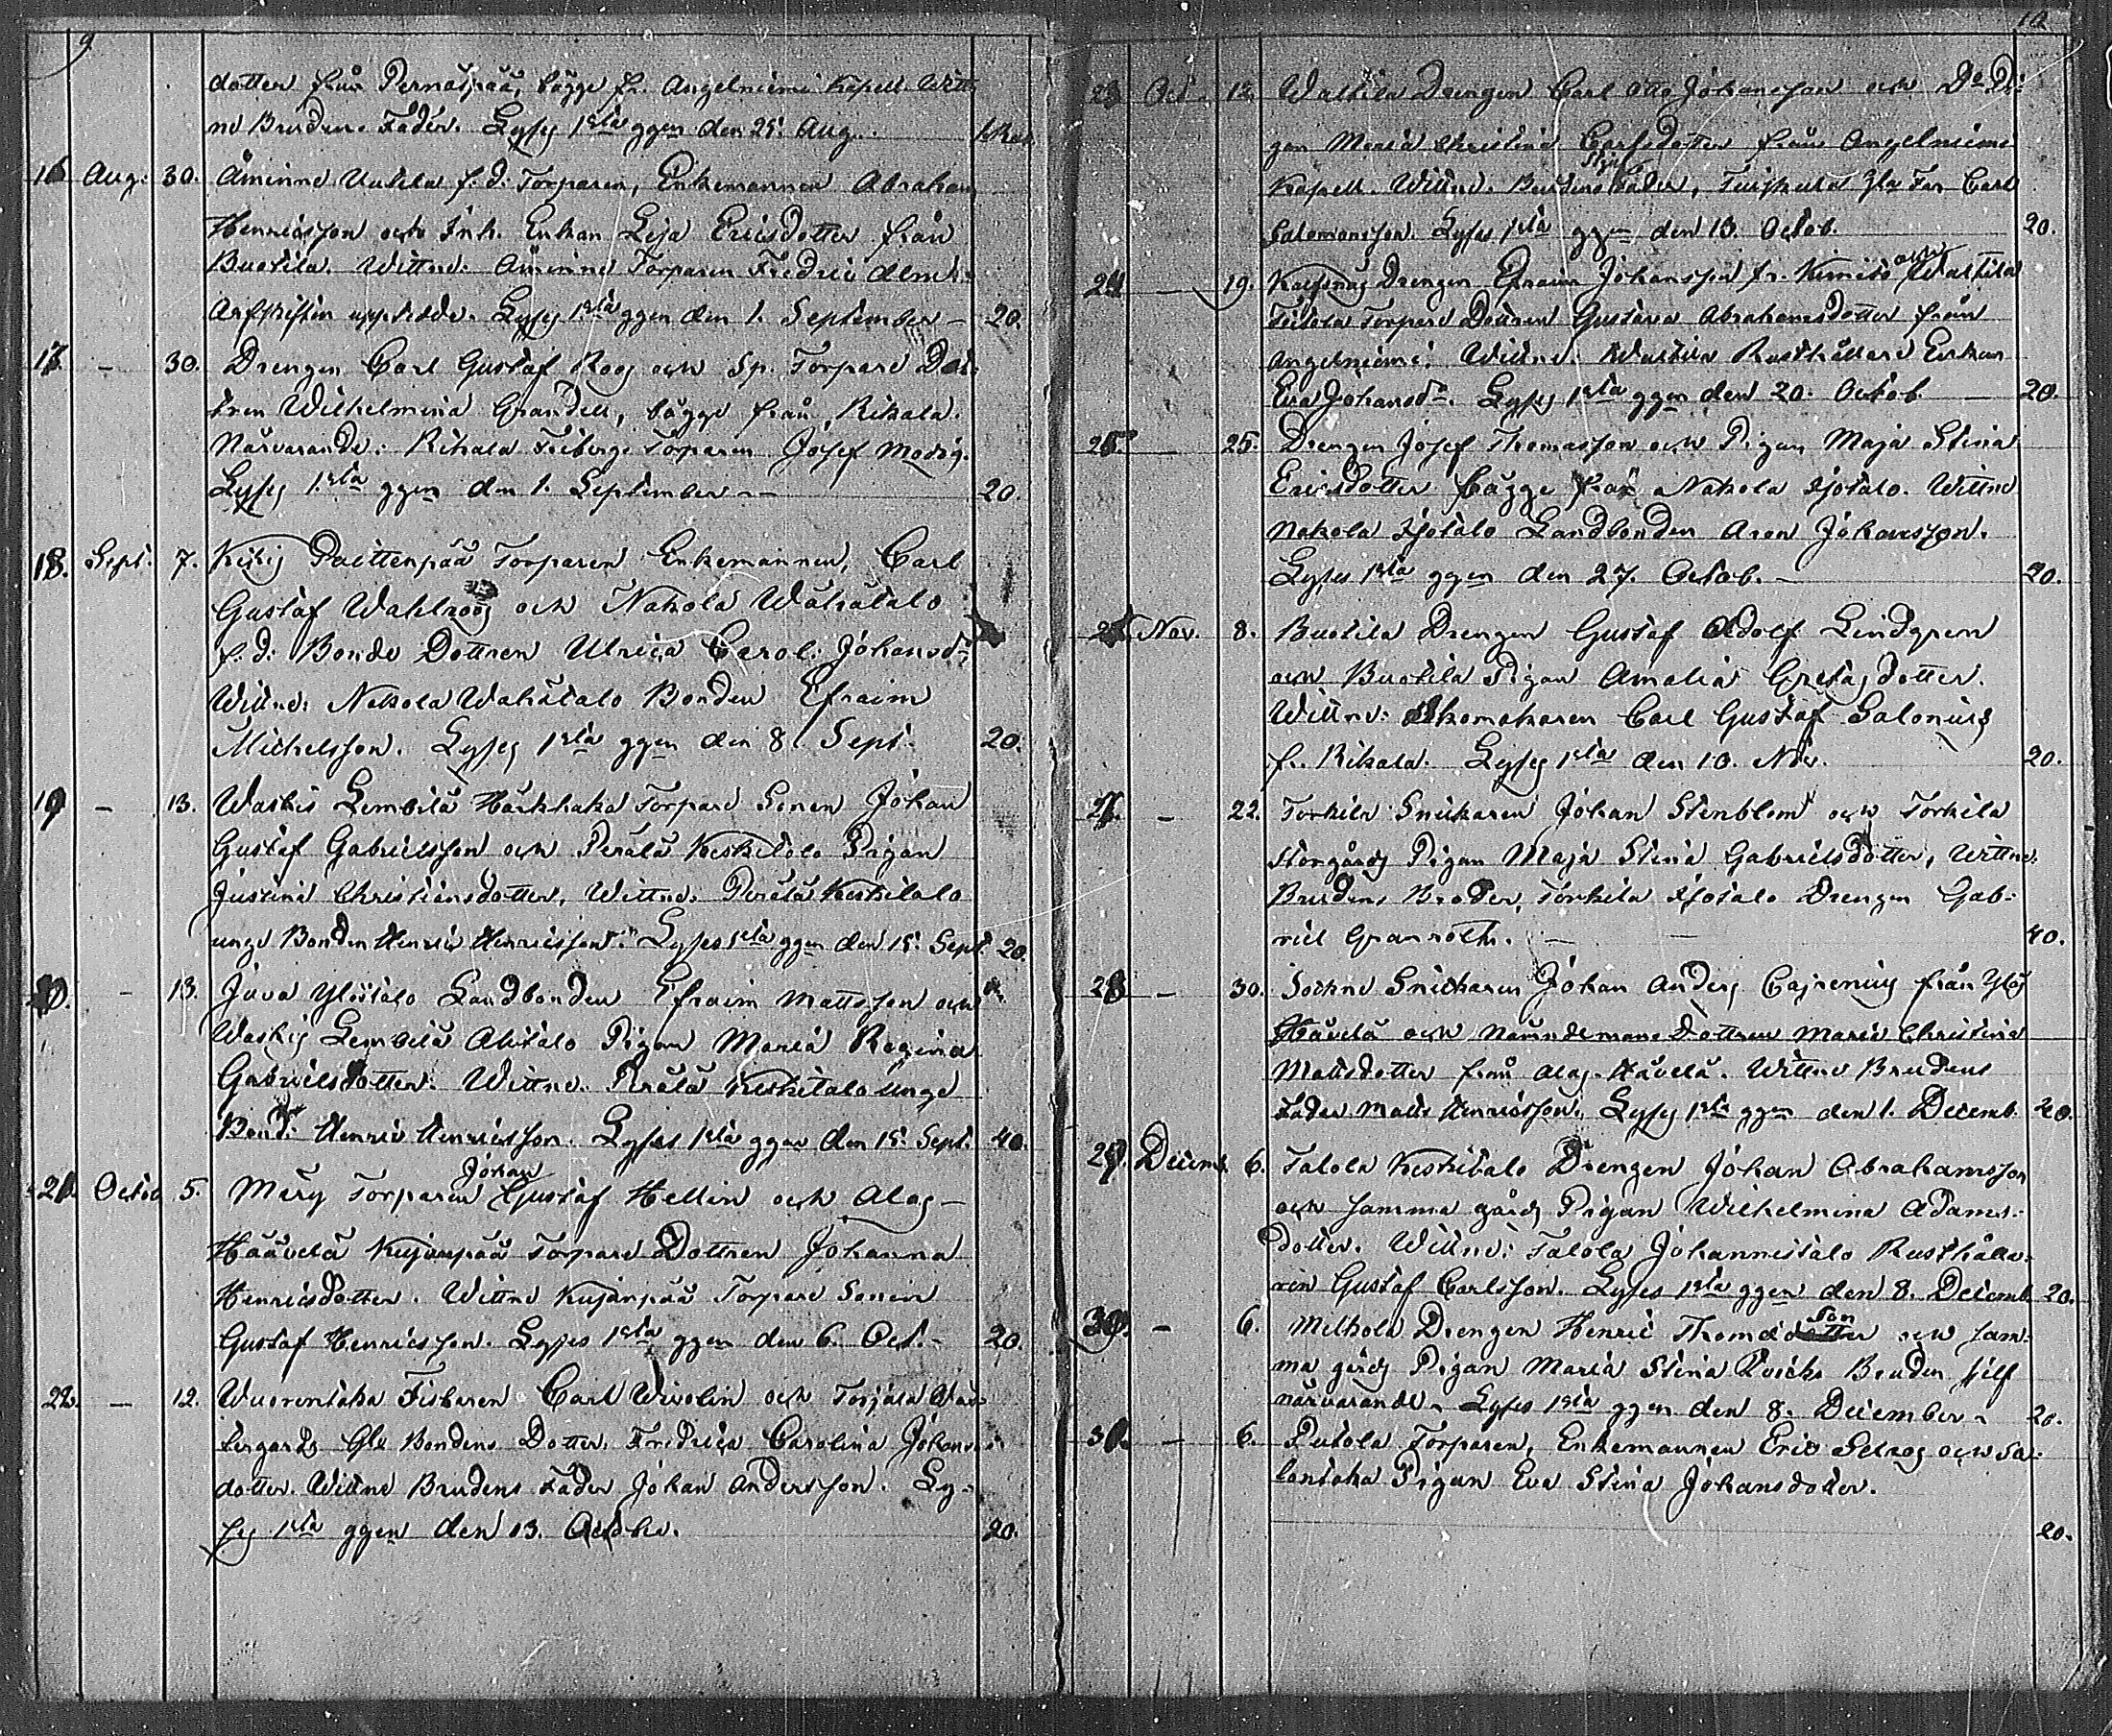 9
dotter från Pernäspää, bägge fr. Angelniemi Kapell. Witt-
ne Brudens Fader. Lyses 1sta ggen den 25. Aug.
16 Aug. 30. Åminne Uutela f.d. Torparen, Enkemannen Abraham
Henricsson och Inh. Enkan Lisa Ericsdotter från
Buotila. Wittne: Åminne Torparen Fredric
Lyses 1sta ggen den 1. September 20.
17. - 30. Drengen Carl Gustaf Roos och Sp. Torpare Dot-
tren Wilhelmina Grandell, bägge från Rikala.
Närvarande: Rikala Friberg Torparen Josef Modig.
Lyses 1sta ggen den 1. September 20.
18. Sept. 7. Kesky Torparen Enkemannen, Carl
Gustaf Wahlroos och Nakola Wähätalo
f.d. Bonde Dottren Ulrica Carol: Johansdr
Wittne: Nakola Wähätalo Bonden Efraim
Michelsson. Lyses 1sta ggen den 8. Sept. 20.
19 - 13. Waskis Lembilä Torpare Sonen Johan
Gustaf Gabrielsson och Perälä Keskitalo Pigan
Justina Christiansdotter, Wittne: Perälä Keskitalo
unge Bonden Henric Henricsson. Lyses 1sta ggen den 15. Sept. 20.
20. - 13. Juva Ylistalo Landbonden Efraim Mattsson och
Waskis Lembilä Alitalo Pigan Maria Regina
Gabrielsdotter. Wittne. Perälä Keskitalo unge
Bond: Henric Henricsson. Lyses 1sta ggen den 15. Sept. 40.
Johan
21. Octob 5. Märy Torparen Gustaf Hellin och Alas-
Häävelä Kujanpää Torpare Dottren Johanna
Henricsdotter. Wittne Kujanpää Torpare Sonen
Gustaf Henricsson. Lyses 1sta ggen den 6. Oct. 20.
22. - 12. Wuorentaka Fiskaren Carl Wivolin och
Gle Bondens Dotter. Fredrica Carolina Johans-
dotter. Wittne Brudens Fader Johan Andersson. Ly-
ses 1sta ggen den 13. Octobr. 20.
10
23 Oct. 12. Waltila Drengen Carl Otto Johansson och Do Pi-
gan Maria Christina Carlsdotter från Angelniemi
Styf
Kapell. Wittne. Brudens Fader, Far Carl
Salomonsson. Lyses 1sta ggen den 13. Octob. 20.
och
24 - 19. Drengen Efraim Johansson fr. Kimito Waltila
Torpare Dottren Gustava Abrahamsdotter från
Angelniemi. Wittne. Waltila Rusthållare Enkan
Eva Johansdr. Lyses 1sta ggen den 20. Octob. 20.
25. - 25. Drengen Josef Thomasson och Pigan Maja Stina
Ericsdotter bägge från Nakola Isotalo. Wittne
Nakola Isotalo Landbonden Aron Johansson.
Lyses 1sta ggen den 27. Octob. 20.
26 Nov. 8. Buotila Drengen Gustaf Adolf Lindgren
och Buotila Pigan Amalia Gretasdotter.
Wittne: Skomakaren Carl Gustaf Salonius
fr. Rikala. Lyses 1sta den 10. Nov. 20.
27. - 22. Torkila Snickaren Johan Stenblom och Torkila
Storgårds Pigan Maja Stina Gabrielsdotter, Wittne.
Brudens Broder, Torkila Isotalo Drengen Gab-
riel Granroth. 40.
28 - 30. Sockne Snickaren Johan Anders Cajrenius från Ylös
Häävelä och Nämndemans Dottren Maria Christina
Mattsdotter från Alas-Hävelä. Wittne Brudens
Fader Matts Henricsson. Lyses 1sta ggen den 1. Decemb. 20.
29. Decemb. 6. Talola Keskitalo Drengen Johan Abrahamsson
och samma gårds Pigan Wilhelmina Adams-
dotter. Wittne: Talola Johannistalo Rusthålla-
ren Gustaf Carlsson. Lyses 1sta ggen den 8. Decemb. 20.
Son
30. - 6. Melkola Drengen Henric Thomdotter och sam-
ma gårds Pigan Maria Stina Bruden sjelf
närvarande. Lyses 1sta ggen den 8. December. 20.
31. - 6. Putola Torparen, Enkemannen Eric Selroos och Sa-
lontaka Pigan Eva Stina Johansdotter.
20.